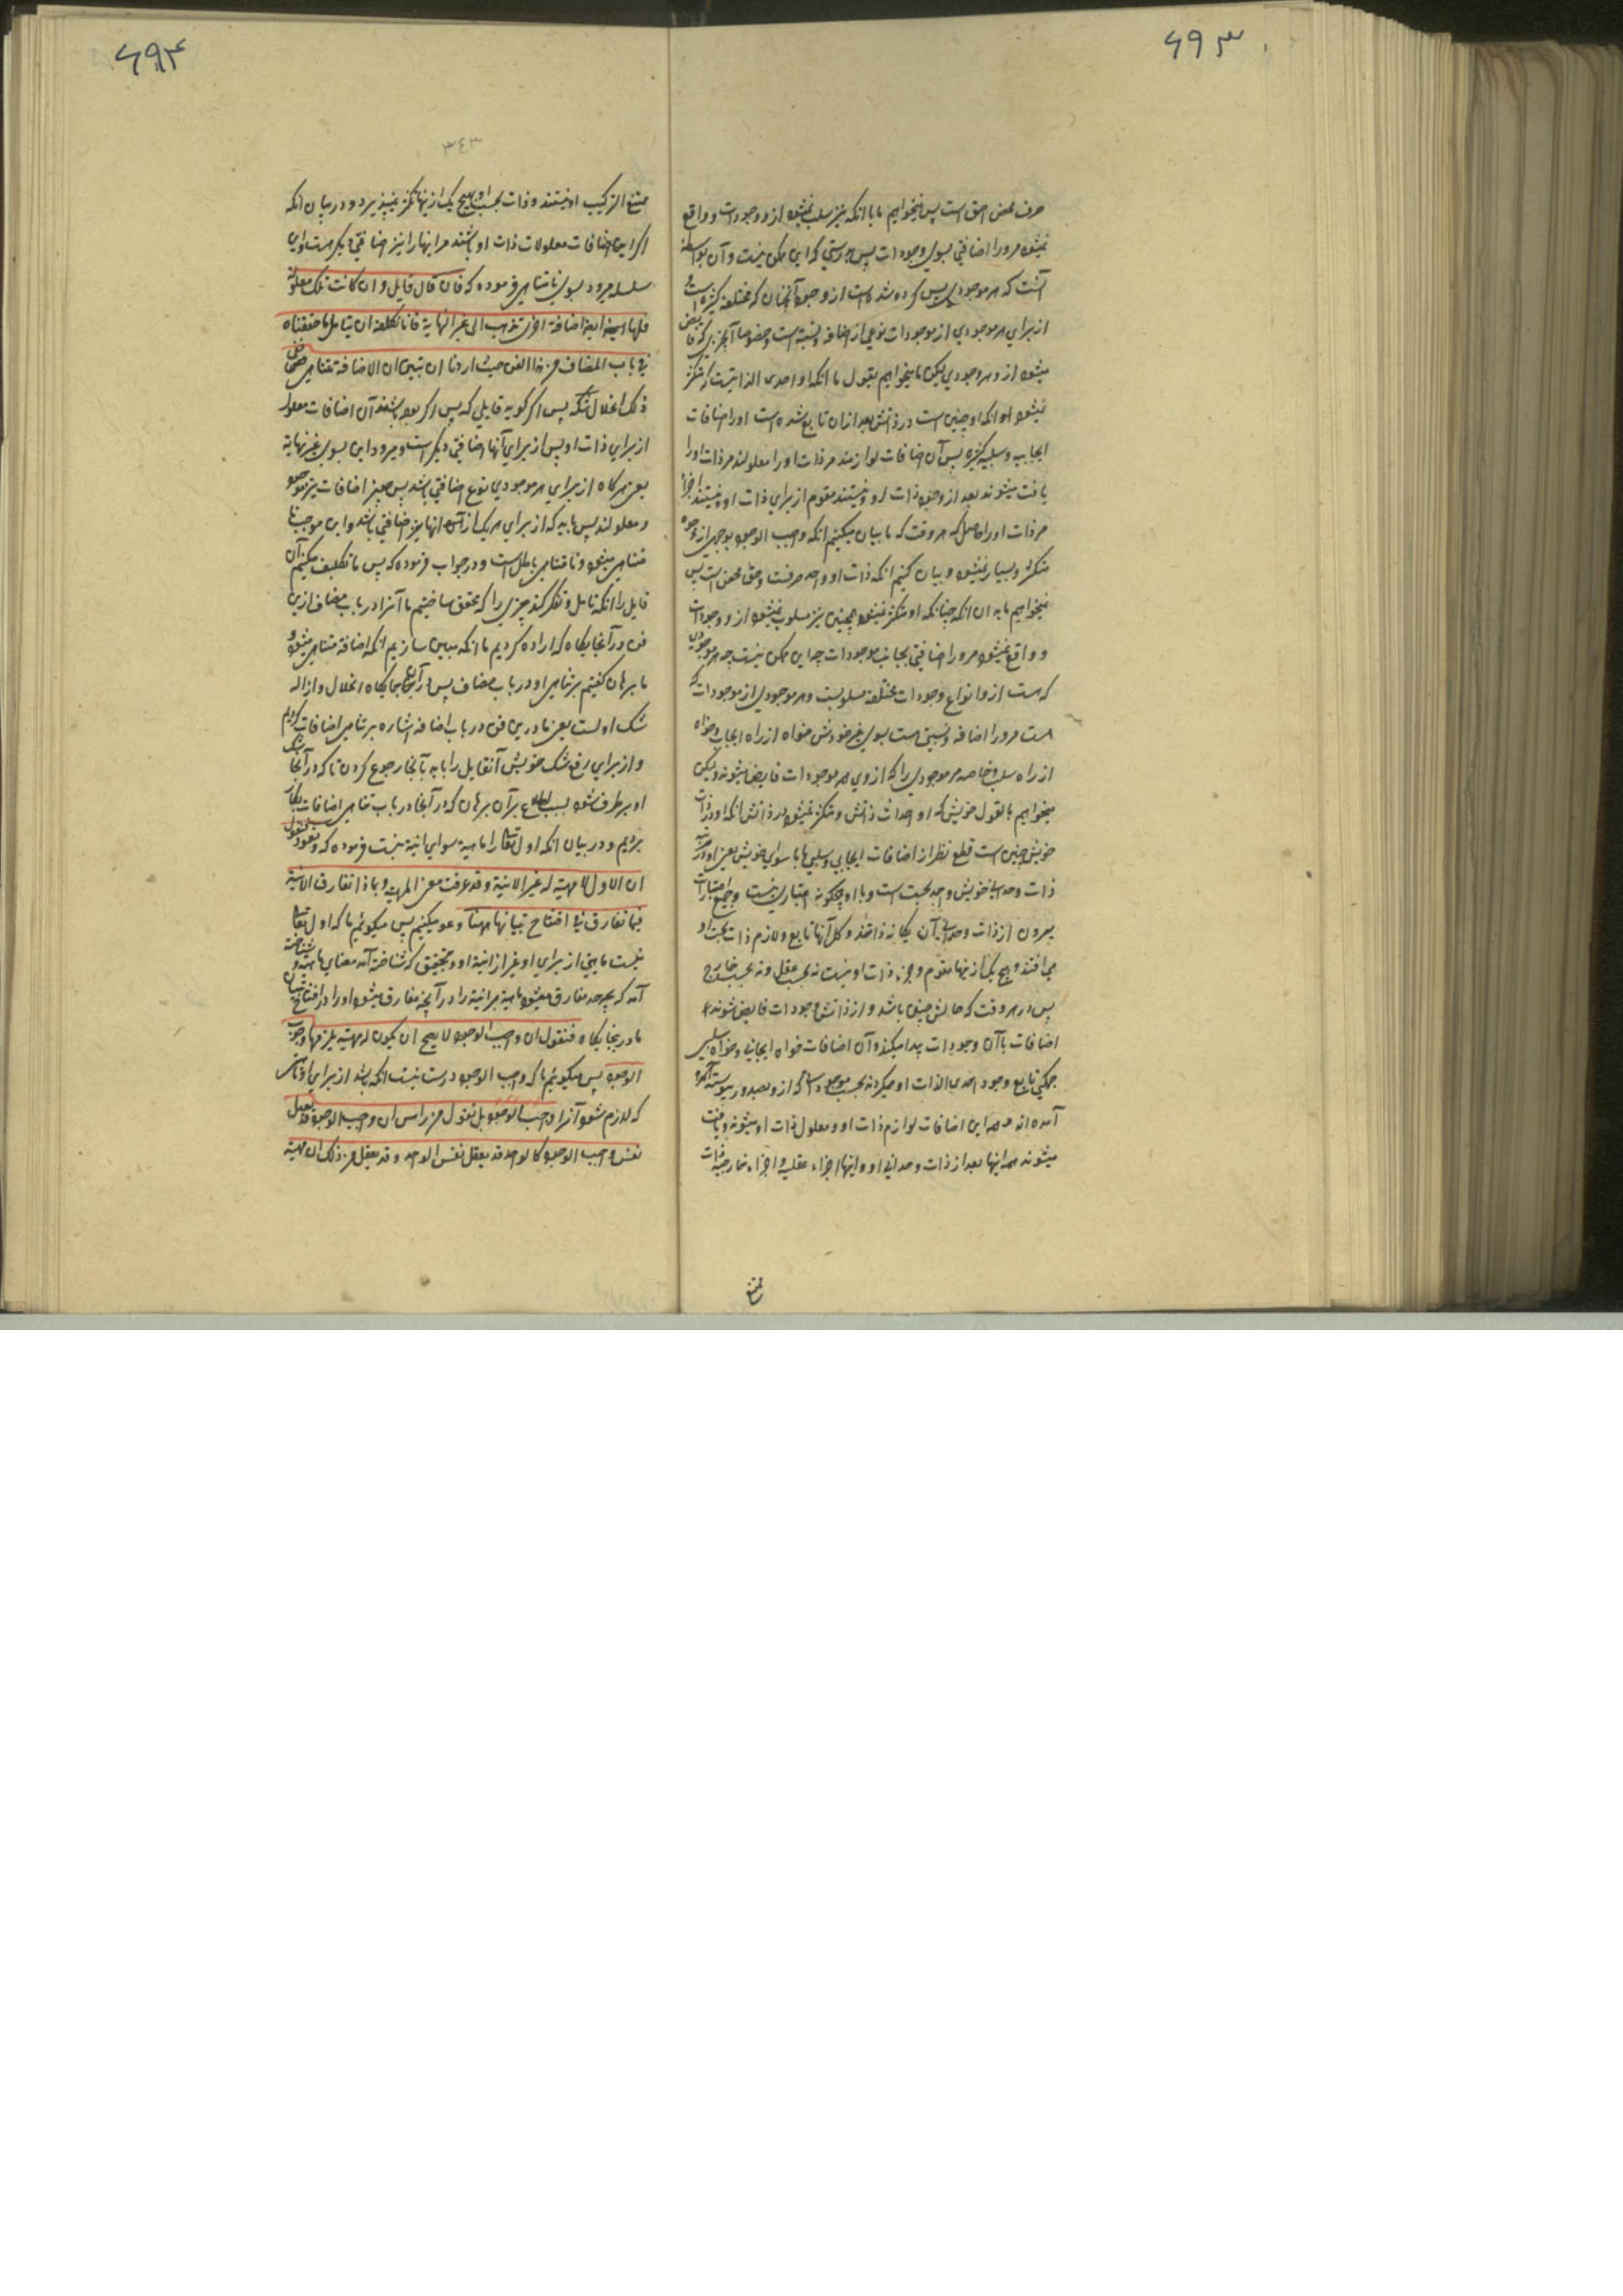 ۶۹۳
صرف محض احق است پس نمیخواهیم ما با انکه نیز سلب نمیشود ازو وجودات و واقع
نمیشود مرورا اضافتی بسوی وجودات پس بدرستی که این ممکن نیست و آن بواسطه
آنست که هر موجودی پس کرده شده است ازو وجوه آنچنان که مختلفه کثیره است و
از برای هر موجودی از موجودات نوعی از اضافه و نسبة است و خصوصا آنچیزی که فایض
میشود ازو هر وجودی لیکن ما میخواهیم بقول ما انکه او احدی الذاتیست که متکثر
نمیشود او انکه او چنین است در ذاتش بعد ازان تابع شده است اورا اضافات
ایجابیه و سلبیه کثیره پس آن اضافات لوازمند مرذات اورا معلولند مرذات اورا
یافت میشوند بعد از وجود ذات او و نیستند مقوم از برای ذات او و نیستند اجزا
مرذات اورا حاصل که هر وقت که ما بیان میکنیم انکه واجب الوجود بوجهی از وجوه
متکثر و بسیار نمیشود و بیان کنیم انکه ذات او واحد صرفست و حق محض است پس
نمیخواهیم ما به ان انکه چنانکه او متکثر نمیشود همچنین نیز مسلوب نمیشود ازو وجودات
و واقع نمیشود مرورا اضافتی بجانب موجودات چه این ممکن نیست چه هر موجودی
که هست ازو انواع وجودات مختلفه مسلوبست و هر موجودی از موجودات که
هست مرورا اضافه و نسبتی هست بسوی غیر خودش خواه از راه ایجاب و خواه
از راه سلب و خاصه هر موجودی را که ازوی همه موجودات فایض میشوند و لیکن
میخواهیم بالقول خویش که او احدات ذاتش و متکثر نمیشود در ذاتش انکه او در ذات
خویش چنین است قطع نظر از اضافات ایجابی و سلبی ما با سوای خویش یعنی او در مرتبه
ذات وحدانی خویش واحد بحت است و با او هیچگونه اعتباری نیست و جمیع اعتبارات
بیرون از ذات وحدانی آن یگانه ذاتند و کل آنها تابع و لازم ذات بحت او
می افتند و هیچ یک از نیها مقوم و جزء ذات او نیست نه بحسب عقل و نه بحسب خارج
پس در هر وقت که حالش چنین باشد و از ذاتش وجودات فایض شوند
اضافات با آن وجودات پیدا میکند و آن اضافات خواه ایجابی و خواه سلبی
جمگی تابع وجود احدی الذات او میگردند بحسب موجوداتی که ازو بصدور پیوسته آمده
آمده اند و همه این اضافات لوازم ذات او و معلول ذات او میشوند و یافت
میشوند همه اینها بعد از ذات وحدانی او و اینها اجزاء عقلیه و اجزاء خارجیه ذات
ممتنع
۶۹۴
۳۴۳
ممتنع الترکیب او نیستند و ذات بحسب او بهیچ یک ازینها تکثر نمیپذیرد و در بیان انکه
اگر این اضافات معلولات ذات او باشند مر اینها را نیز اضافتی دیگر هست و این
سلسله میرود بسوی نامتناهی فرموده که فان قال قایل و ان کانت تلک معلوله
فلها ایضا اضافة اخری تذهب الی غیر النهایة فانا نکلفه ان یتامل ما حققناه
فی باب المضاف من هذا الفن حیث اردنا ان نبین ان الاضافة تتناهی ففی
ذلک انحلال شکه پس اگر گوید قایلی که پس اگر بوده باشند آن اضافات معلول
از برای ذات او پس از برای آنها اضافتی دیگر است و میرود این بسوی غیر نهایة
یعنی هرگاه از برای هر موجودی نوع اضافتی باشد پس چون اضافات نیز موجود
و معلولند پس باید که از برای هر یک از آنها نیز اضافتی باشد و این موجب نا
متناهی میشود و نامتناهی باطل است و در جواب فرموده که پس ما تکلیف میکنیم آن
قایل را انکه تامل و تفکر کند چیزی را که محقق ساختیم ما آنرا در باب مضاف ازین
فن در آنجایگاه که اراده کردیم ما انکه مبین سازیم انکه اضافه متناهی میشود و
ما برهان گفتیم بر تناهی او در باب مضاف پس در آنجایگاه انحلال و ازاله
شک اوست یعنی ما درین فن در باب اضافه اشاره بر تناهی اضافات کردیم
و از برای رفع شک خویش آنقایل را باید بآنجا رجوع کردن تا که در آنجا شک
او برطرف شود بسبب اطلاع بر آن برهان که در آنجا در باب تناهی اضافات بکار
بردیم و در بیان انکه اول تعالی را ماهیة سوای انیة نیست فرموده که و نعود فنقول
ان الاول لا مهیة له غیر الانیة و قد عرفت معنی المهیة و بماذا تفارق الانیة
فیما تفارق فی افتتاح تبیاننا هذا و عود میکنیم پس میگوئیم ما که اول تعالی
نیست ماهیتی از برای او غیر از انیة او و بتحقیق که شناخته آمد معنای ماهیت و شناخته
آمد که بچه چیز مفارق میشود ماهیة مر انیة را در آنچه مفارق میشود اورا در افتتاح بیان
ما درینجایگاه فنقول ان واجب الوجود لا یصح ان یکون له مهیة یلزمها وجوب
الوجود پس میگوئیم ما که واجب الوجود درست نیست انکه باشد از برای او ماهیتی
که لازم شود آنرا وجب الوجود بل نقول من راس ان واجب الوجود قد یعقل
نفس واجب الوجود کالواحد قد یعقل نفس الواحد و قد یعقل من ذلک ان مهیة